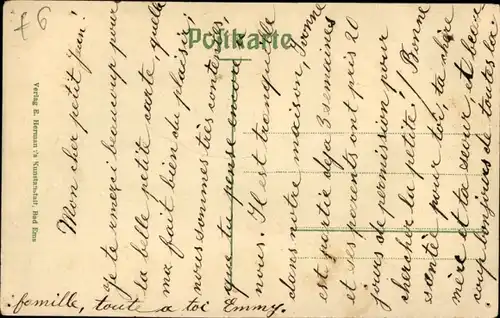 6
Postkarte
Verlag E. Hermann's Kunstanstalt, Bad Ems
Mon cher petit Jean!
Je te remerci beaucoup pour
la belle petite carte, quelle
ma fait bien du plaisir,
nous sommes très contentes,
que tu pense encore à
nous. Il est tranquille
dans notre maison, Ivonne
est partie déja 3 semaines
et ses parents ont pris 20
jours de permission pour
chercher la petite! Bonne
santée pour toi, ta chère
mère et ta sœur, et beau
coup bonjours de toutes la
famille, toute a toi Emmy.